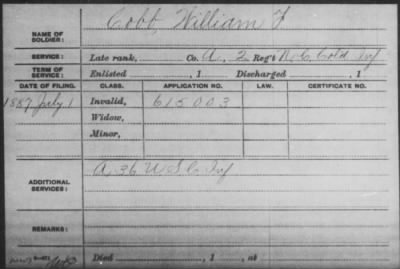 Cobb, William F
NAME OF SOLDIER:
SERVICE: Late rank, Co. A, 2 Reg't N.C. Col'd Inf
TERM OF SERVICE: Enlisted , 1 Discharged , 1
DATE OF FILING. CLASS. APPLICATION NO. LAW. CERTIFICATE NO.
1887 July 1 Invalid, 615003
Widow,
Minor,
A 36 U S C Inf
ADDITIONAL SERVICES:
REMARKS:
Died , 1 , at